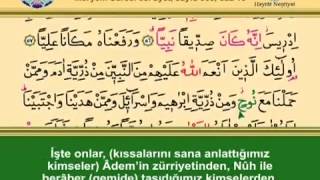 Hayrât Neşriyat
اِدْر۪يسَۘ اِنَّهُ كَانَ صِدّ۪يقًا نَبِيًّا ﴿٥٦﴾ وَرَفَعْنَاهُ مَكَانًا عَلِيًّا ﴿٥٧﴾
اُولٰٓئِكَ الَّذ۪ينَ اَنْعَمَ اللّٰهُ عَلَيْهِمْ مِنَ النَّبِيّ۪نَ مِنْ ذُرِّيَّةِ اٰدَمَ وَمِمَّنْ
حَمَلْنَا مَعَ نُوحٍ وَمِنْ ذُرِّيَّةِ اِبْرٰه۪يمَ وَاِسْرَٓائ۪لَ وَمِمَّنْ هَدَيْنَا وَاجْتَبَيْنَا
İşte onlar, (kıssalarını sana anlattığımız
kimseler) Âdem'in zürriyetinden, Nûh ile
berâber (gemide) taşıdığımız kimselerden